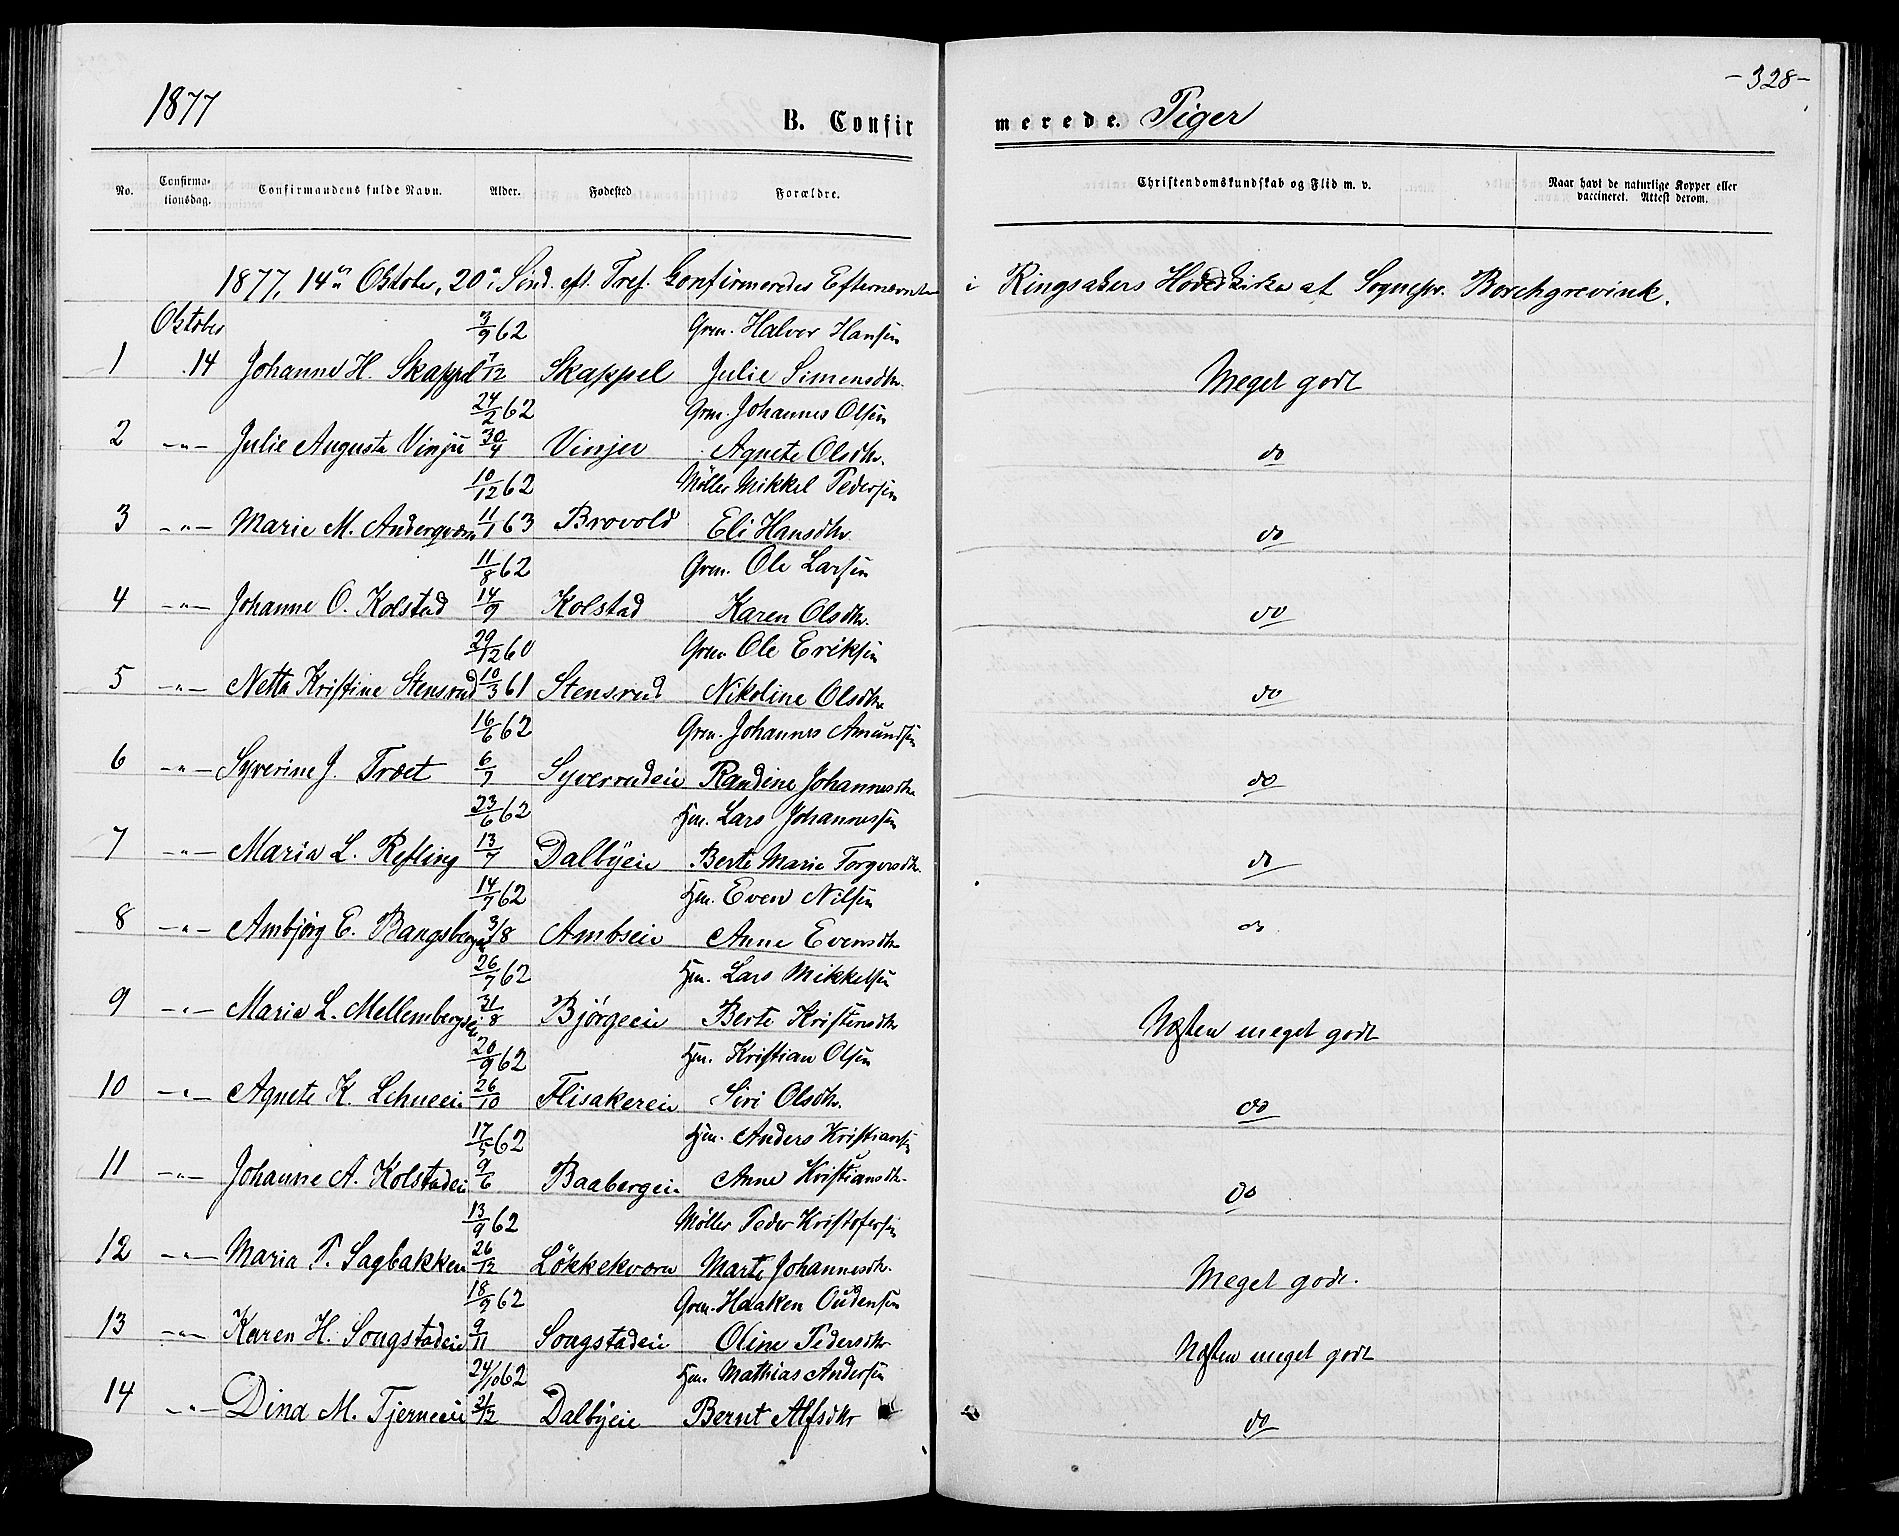 1877
B. Confirmerede. Piger
-328-
No. Confirmationsdag. Confirmandens fulde Navn. Alder. Fødested Forældre. Christendomskundskab og Flid m. v. Naar havt de naturlige Kopper eller vaccineret. Attest derom.
1877, 14de Oktober, 20de Sønd. eft. Tref. Confirmeredes Efternævnte i Ringsakers Hovedkirke af Sognepr. Borchgrevink.
Oktober 3/9 62 Grm. Halvor Hansen
1 14 Johanne H. Skappel 7/12 Skappel Julie Simensdtr. Meget godt
24/2 62 Grm. Johannes Olsen
2 -"- Julie Augusta Vinju 30/4 Vinjer Agnete Olsdtr. do
10/12 62 Møller Mikkel Pedersen
3 -"- Marie M. Anderqværn 11/1 63 Brovold Eli Hansdtr. do
11/8 62 Grm. Ole Larsen
4 -"- Johanne O. Kolstad 14/9 Kolstad Karen Olsdtr. do
29/12 60 Grm. Ole Eriksen
5 -"- Netta Kristine Stensrud 10/3 61 Stensrud Nikoline Olsdtr do
16/6 62 Grm. Johannes Amundsen
6 -"- Syverine J. Træet 6/7 Syverrudeie Randine Johannesdtr do
23/6 62 Hm. Lars Johannessen
7 -"- Maria L. Refling 13/7 Dalbyeie Berte Marie Torgersdtr. do
14/7 62 Hm. Even Nilsen
8 -"- Ambjørg E. Bangsberg 3/8 Ambseie Anne Evensdtr do
26/7 62 Hm. Lars Mikkelsen
9 -"- Maria L. Mellembergsei 31/8 Bjørgeeie Berte Kristensdtr Næsten meget godt
20/9 62 Hm. Kristian Olsen
10 -"- Agnete K. Lehneeie 26/10 Flisakereie Siri Olsdtr. do
17/5 62 Hm. Anders Kristiansen
11 -"- Johanne A. Kolstadeie 9/6 Baabergeie Anne Kristiansdtr. do
13/9 62 Møller Peder Kristofersen
12 -"- Maria P. Sagbakken 26/12 Løkkekværn Marte Johannesdtr. Meget godt.
18/9 62 Grm. Haaken Oudensen
13 -"- Karen H. Songstadeie 9/11 Songstadeie Oline Pedersdtr Næsten meget godt
24/10 62 Hm. Mathias Andersen
14 -"- Dina M. Tjerneeie 21/12 Dalbyeie Bernt Alfsdtr do